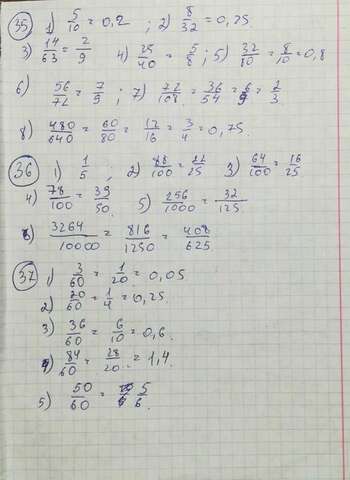 35 1) 5/10 = 0,2 ; 2) 8/32 = 0,25
3) 14/63 = 2/9 4) 25/40 = 5/8 ; 5) 32/80 = 8/10 = 0,8
6) 56/72 = 7/9 ; 7) 72/108 = 36/54 = 6/9 = 2/3
8) 480/640 = 60/80 = 12/16 = 3/4 = 0,75.
36 1) 1/5 ; 2) 88/100 = 22/25 3) 64/100 = 16/25
4) 78/100 = 39/50. 5) 256/1000 = 32/125
6) 3264/10000 = 816/1250 = 408/625
37 1) 3/60 = 1/20 = 0,05
2) 20/60 = 1/4 = 0,25.
3) 36/60 = 6/10 = 0,6.
4) 84/60 = 28/20 = 1,4.
5) 50/60 = 5/6.